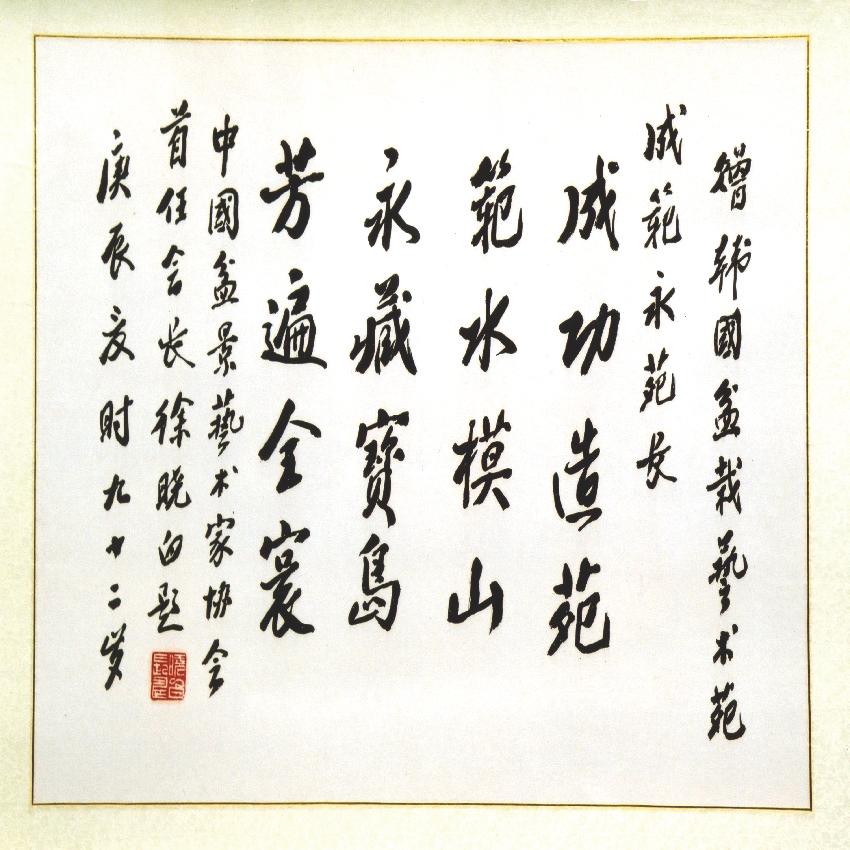 贈韩國盆栽藝术苑
成範永苑长
成功造苑
範水模山
永藏寶島
芳遍全寰
中國盆景藝术家协会
首任会长徐晓白题
庚辰夏时九十二岁